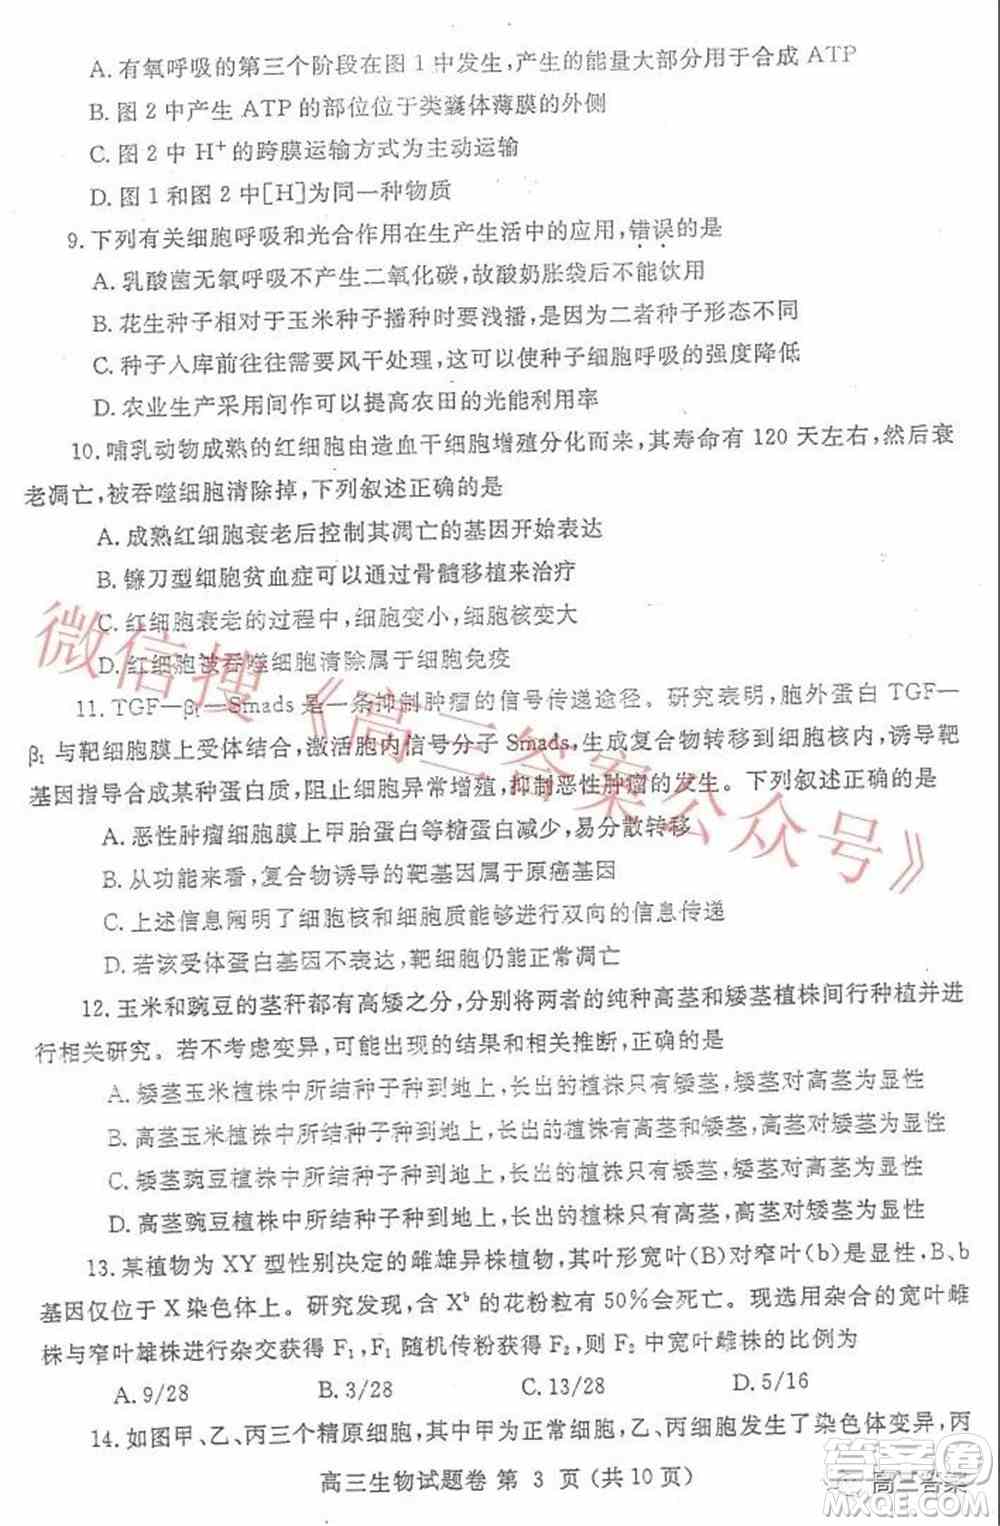 A.有氧呼吸的第三个阶段在图1中发生,产生的能量大部分用于合成ATP
B.图2中产生ATP的部位位于类囊体薄膜的外侧
C.图2中H⁺的跨膜运输方式为主动运输
D.图1和图2中[H]为同一种物质
9.下列有关细胞呼吸和光合作用在生产生活中的应用,错误的是
A.乳酸菌无氧呼吸不产生二氧化碳,故酸奶胀袋后不能饮用
B.花生种子相对于玉米种子播种时要浅播,是因为二者种子形态不同
C.种子入库前往往需要风干处理,这可以使种子细胞呼吸的强度降低
D.农业生产采用间作可以提高农田的光能利用率
10.哺乳动物成熟的红细胞由造血干细胞增殖分化而来,其寿命有120天左右,然后衰
老凋亡,被吞噬细胞清除掉,下列叙述正确的是
A.成熟红细胞衰老后控制其凋亡的基因开始表达
B.镰刀型细胞贫血症可以通过骨髓移植来治疗
C.红细胞衰老的过程中,细胞变小,细胞核变大
D.红细胞被吞噬细胞清除属于细胞免疫
11.TGF—β₁—Smads是一条抑制肿瘤的信号传递途径。研究表明,胞外蛋白TGF—
β₁与靶细胞膜上受体结合,激活胞内信号分子Smads,生成复合物转移到细胞核内,诱导靶
基因指导合成某种蛋白质,阻止细胞异常增殖,抑制恶性肿瘤的发生。下列叙述正确的是
A.恶性肿瘤细胞膜上甲胎蛋白等糖蛋白减少,易分散转移
B.从功能来看,复合物诱导的靶基因属于原癌基因
C.上述信息阐明了细胞核和细胞质能够进行双向的信息传递
D.若该受体蛋白基因不表达,靶细胞仍能正常凋亡
12.玉米和豌豆的茎秆都有高矮之分,分别将两者的纯种高茎和矮茎植株间行种植并进
行相关研究。若不考虑变异,可能出现的结果和相关推断,正确的是
A.矮茎玉米植株中所结种子种到地上,长出的植株只有矮茎,矮茎对高茎为显性
B.高茎玉米植株中所结种子种到地上,长出的植株有高茎和矮茎,高茎对矮茎为显性
C.矮茎豌豆植株中所结种子种到地上,长出的植株只有矮茎,矮茎对高茎为显性
D.高茎豌豆植株中所结种子种到地上,长出的植株有高茎和矮茎,高茎对矮茎为显性
13.某植物为XY型性别决定的雌雄异株植物,其叶形宽叶(B)对窄叶(b)是显性,B、b
基因仅位于X染色体上。研究发现,含Xᵇ的花粉粒有50%会死亡。现选用杂合的宽叶雌
株与窄叶雄株进行杂交获得F₁,F₁随机传粉获得F₂,则F₂中宽叶雌株的比例为
A.9/28 B.3/28 C.13/28 D.5/16
14.如图甲、乙、丙三个精原细胞,其中甲为正常细胞,乙、丙细胞发生了染色体变异,丙
高三生物试题卷 第 3 页(共10页)
微信搜《高三答案公众号》
答案圈
高三答案
MXQE.COM